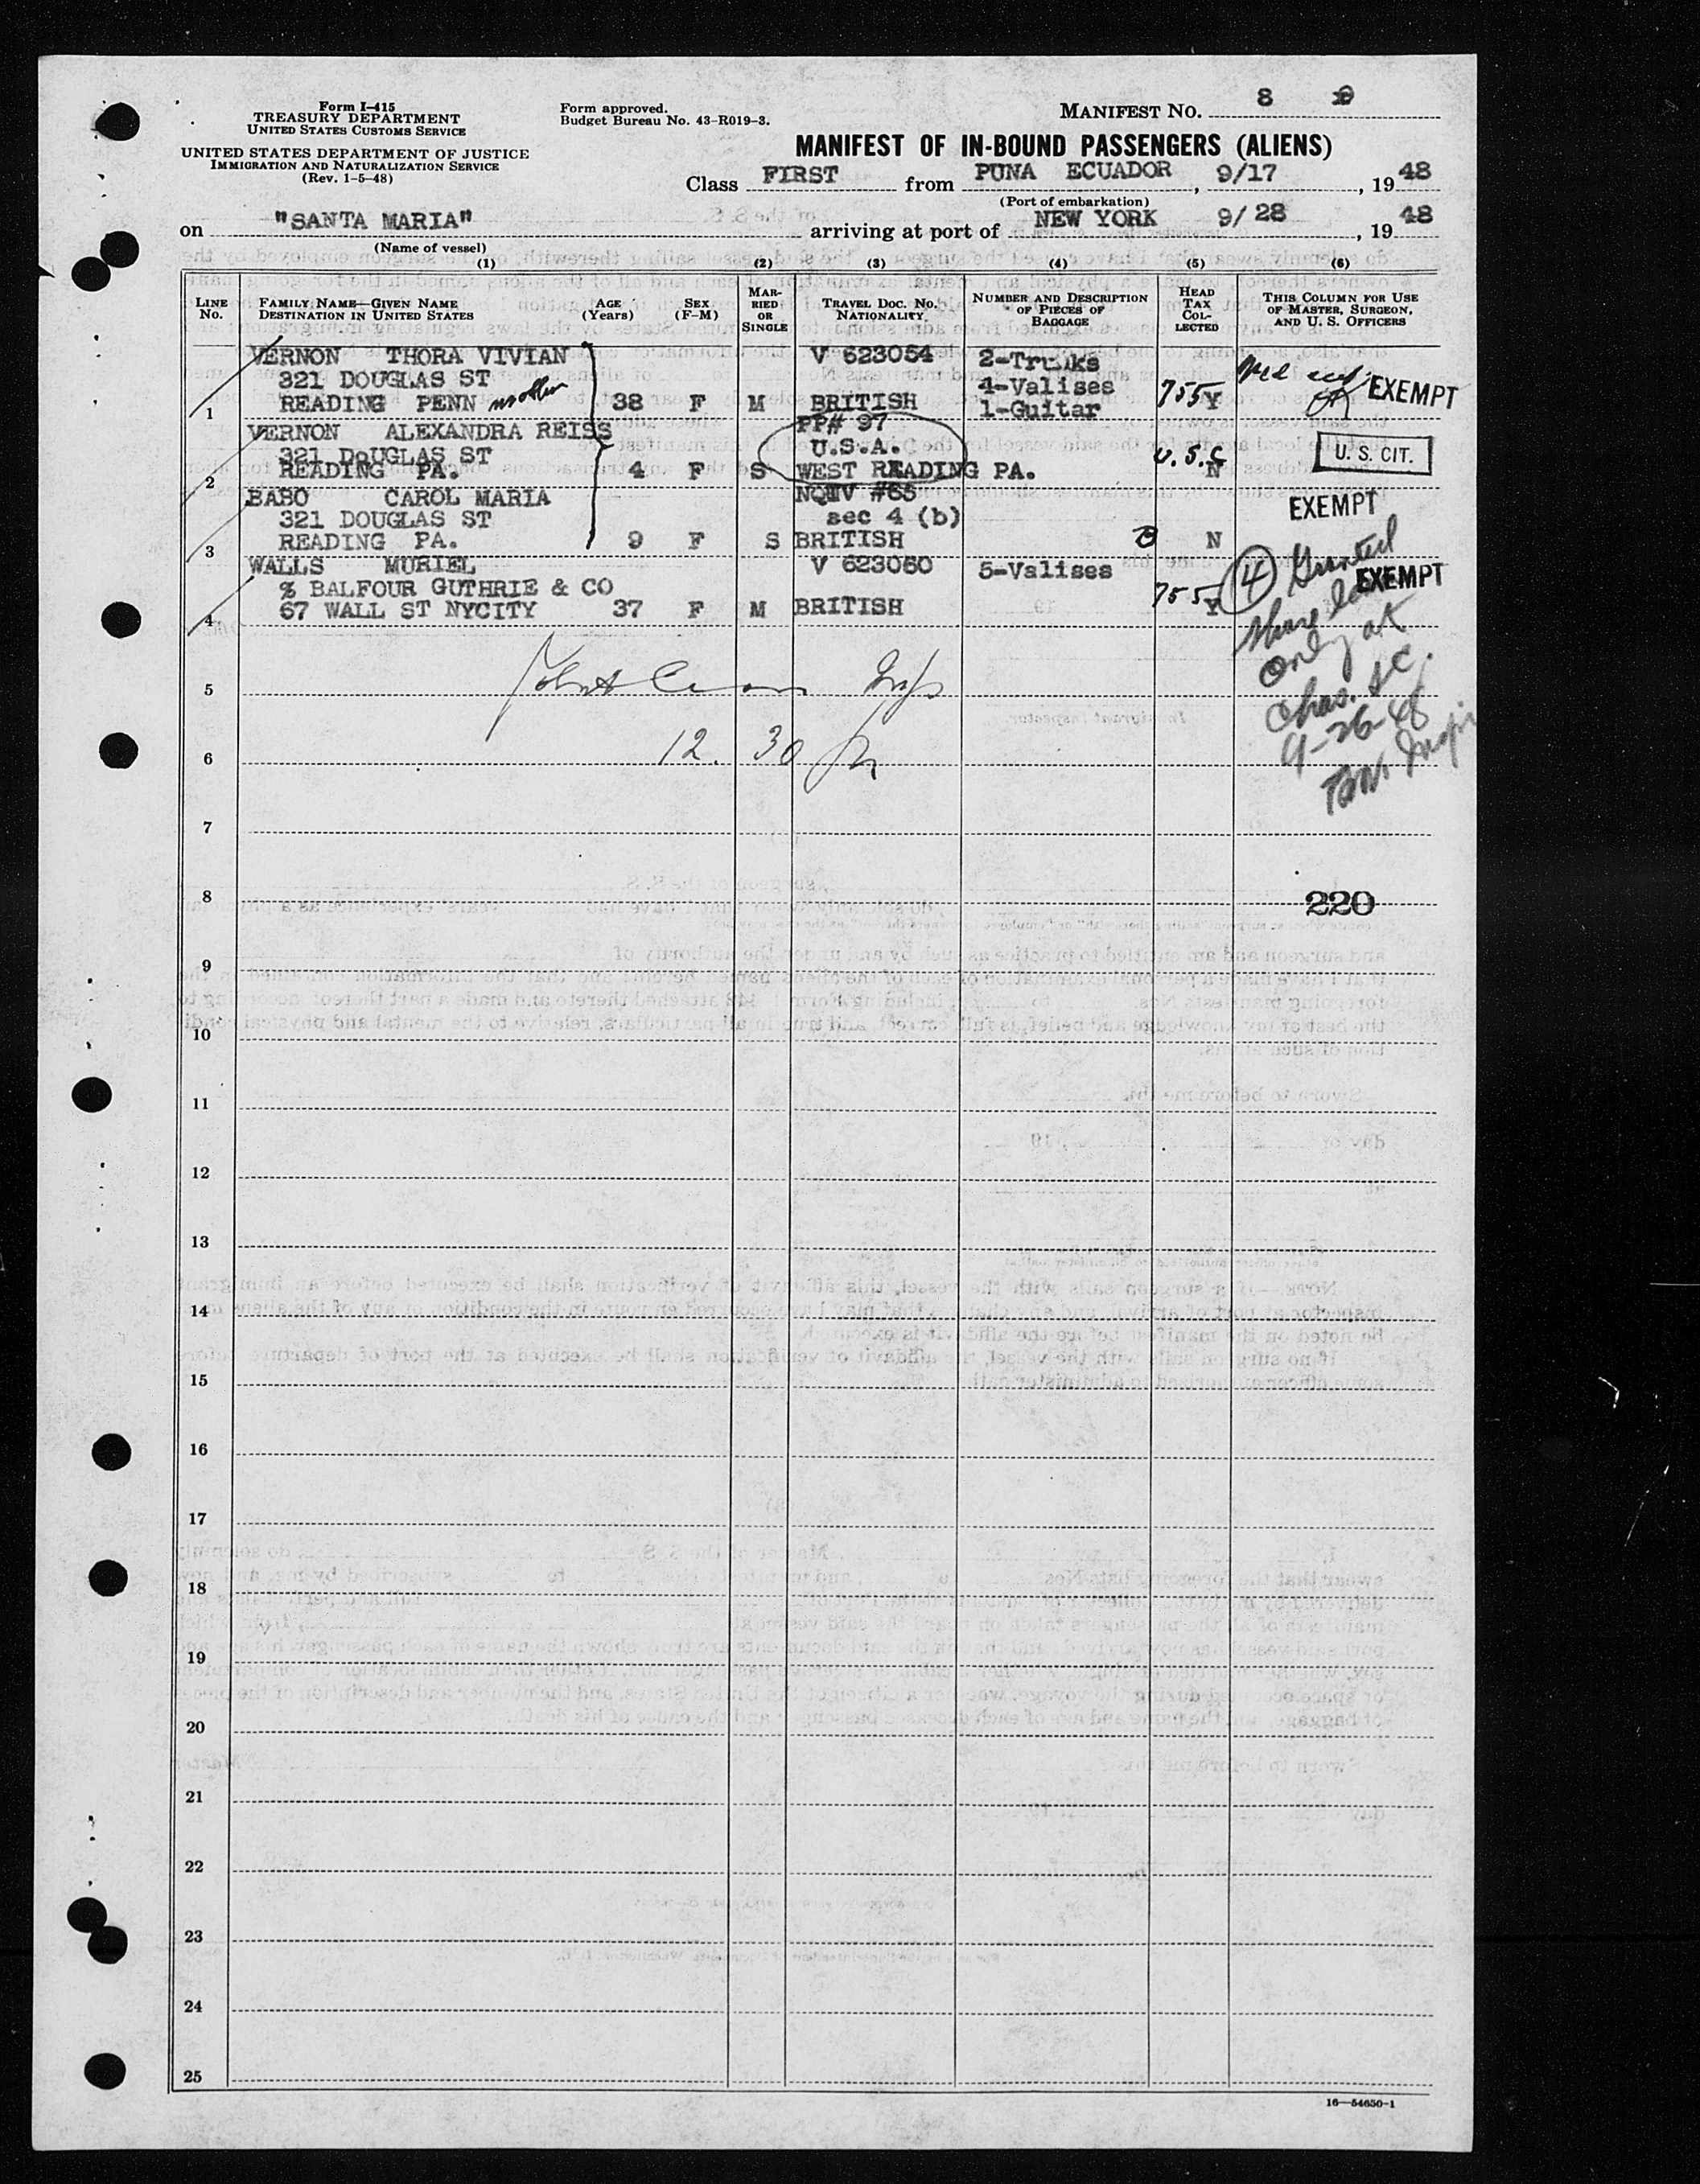 Form I-415
TREASURY DEPARTMENT
UNITED STATES CUSTOMS SERVICE
UNITED STATES DEPARTMENT OF JUSTICE
IMMIGRATION AND NATURALIZATION SERVICE
(Rev. 1-5-48)
Form approved.
Budget Bureau No. 43-R019-3.
MANIFEST No. 8
MANIFEST OF IN-BOUND PASSENGERS (ALIENS)
Class FIRST from PUNA ECUADOR, 9/17, 1948
(Port of embarkation)
on "SANTA MARIA" arriving at port of NEW YORK 9/28, 1948
(Name of vessel)
(1) (2) (3) (4) (5) (6)
LINE No.
FAMILY NAME—GIVEN NAME
DESTINATION IN UNITED STATES
AGE (Years)
SEX (F-M)
MARRIED OR SINGLE
TRAVEL DOC. NO. NATIONALITY
NUMBER AND DESCRIPTION OF PIECES OF BAGGAGE
HEAD TAX COLLECTED
THIS COLUMN FOR USE OF MASTER, SURGEON, AND U. S. OFFICERS
VERNON THORA VIVIAN V 623054 2-Trunks
321 DOUGLAS ST 4-Valises
1 READING PENN mother 38 F M BRITISH 1-Guitar 755 Y EXEMPT
VERNON ALEXANDRA REISS PP# 97
321 DOUGLAS ST U.S.A. U.S.C U. S. CIT.
2 READING PA. 4 F S WEST READING PA. N
BABO CAROL MARIA NQIV #65 EXEMPT
321 DOUGLAS ST sec 4 (b)
3 READING PA. 9 F S BRITISH N
WALLS MURIEL V 623060 5-Valises EXEMPT
% BALFOUR GUTHRIE & CO
4 67 WALL ST NYCITY 37 F M BRITISH 755 Y
4 Granted
shore leave
only at
Chas. S.C.
9-26-48
5
6
12.30
7
8
220
9
10
11
12
13
14
15
16
17
18
19
20
21
22
23
24
25
16—54650-1